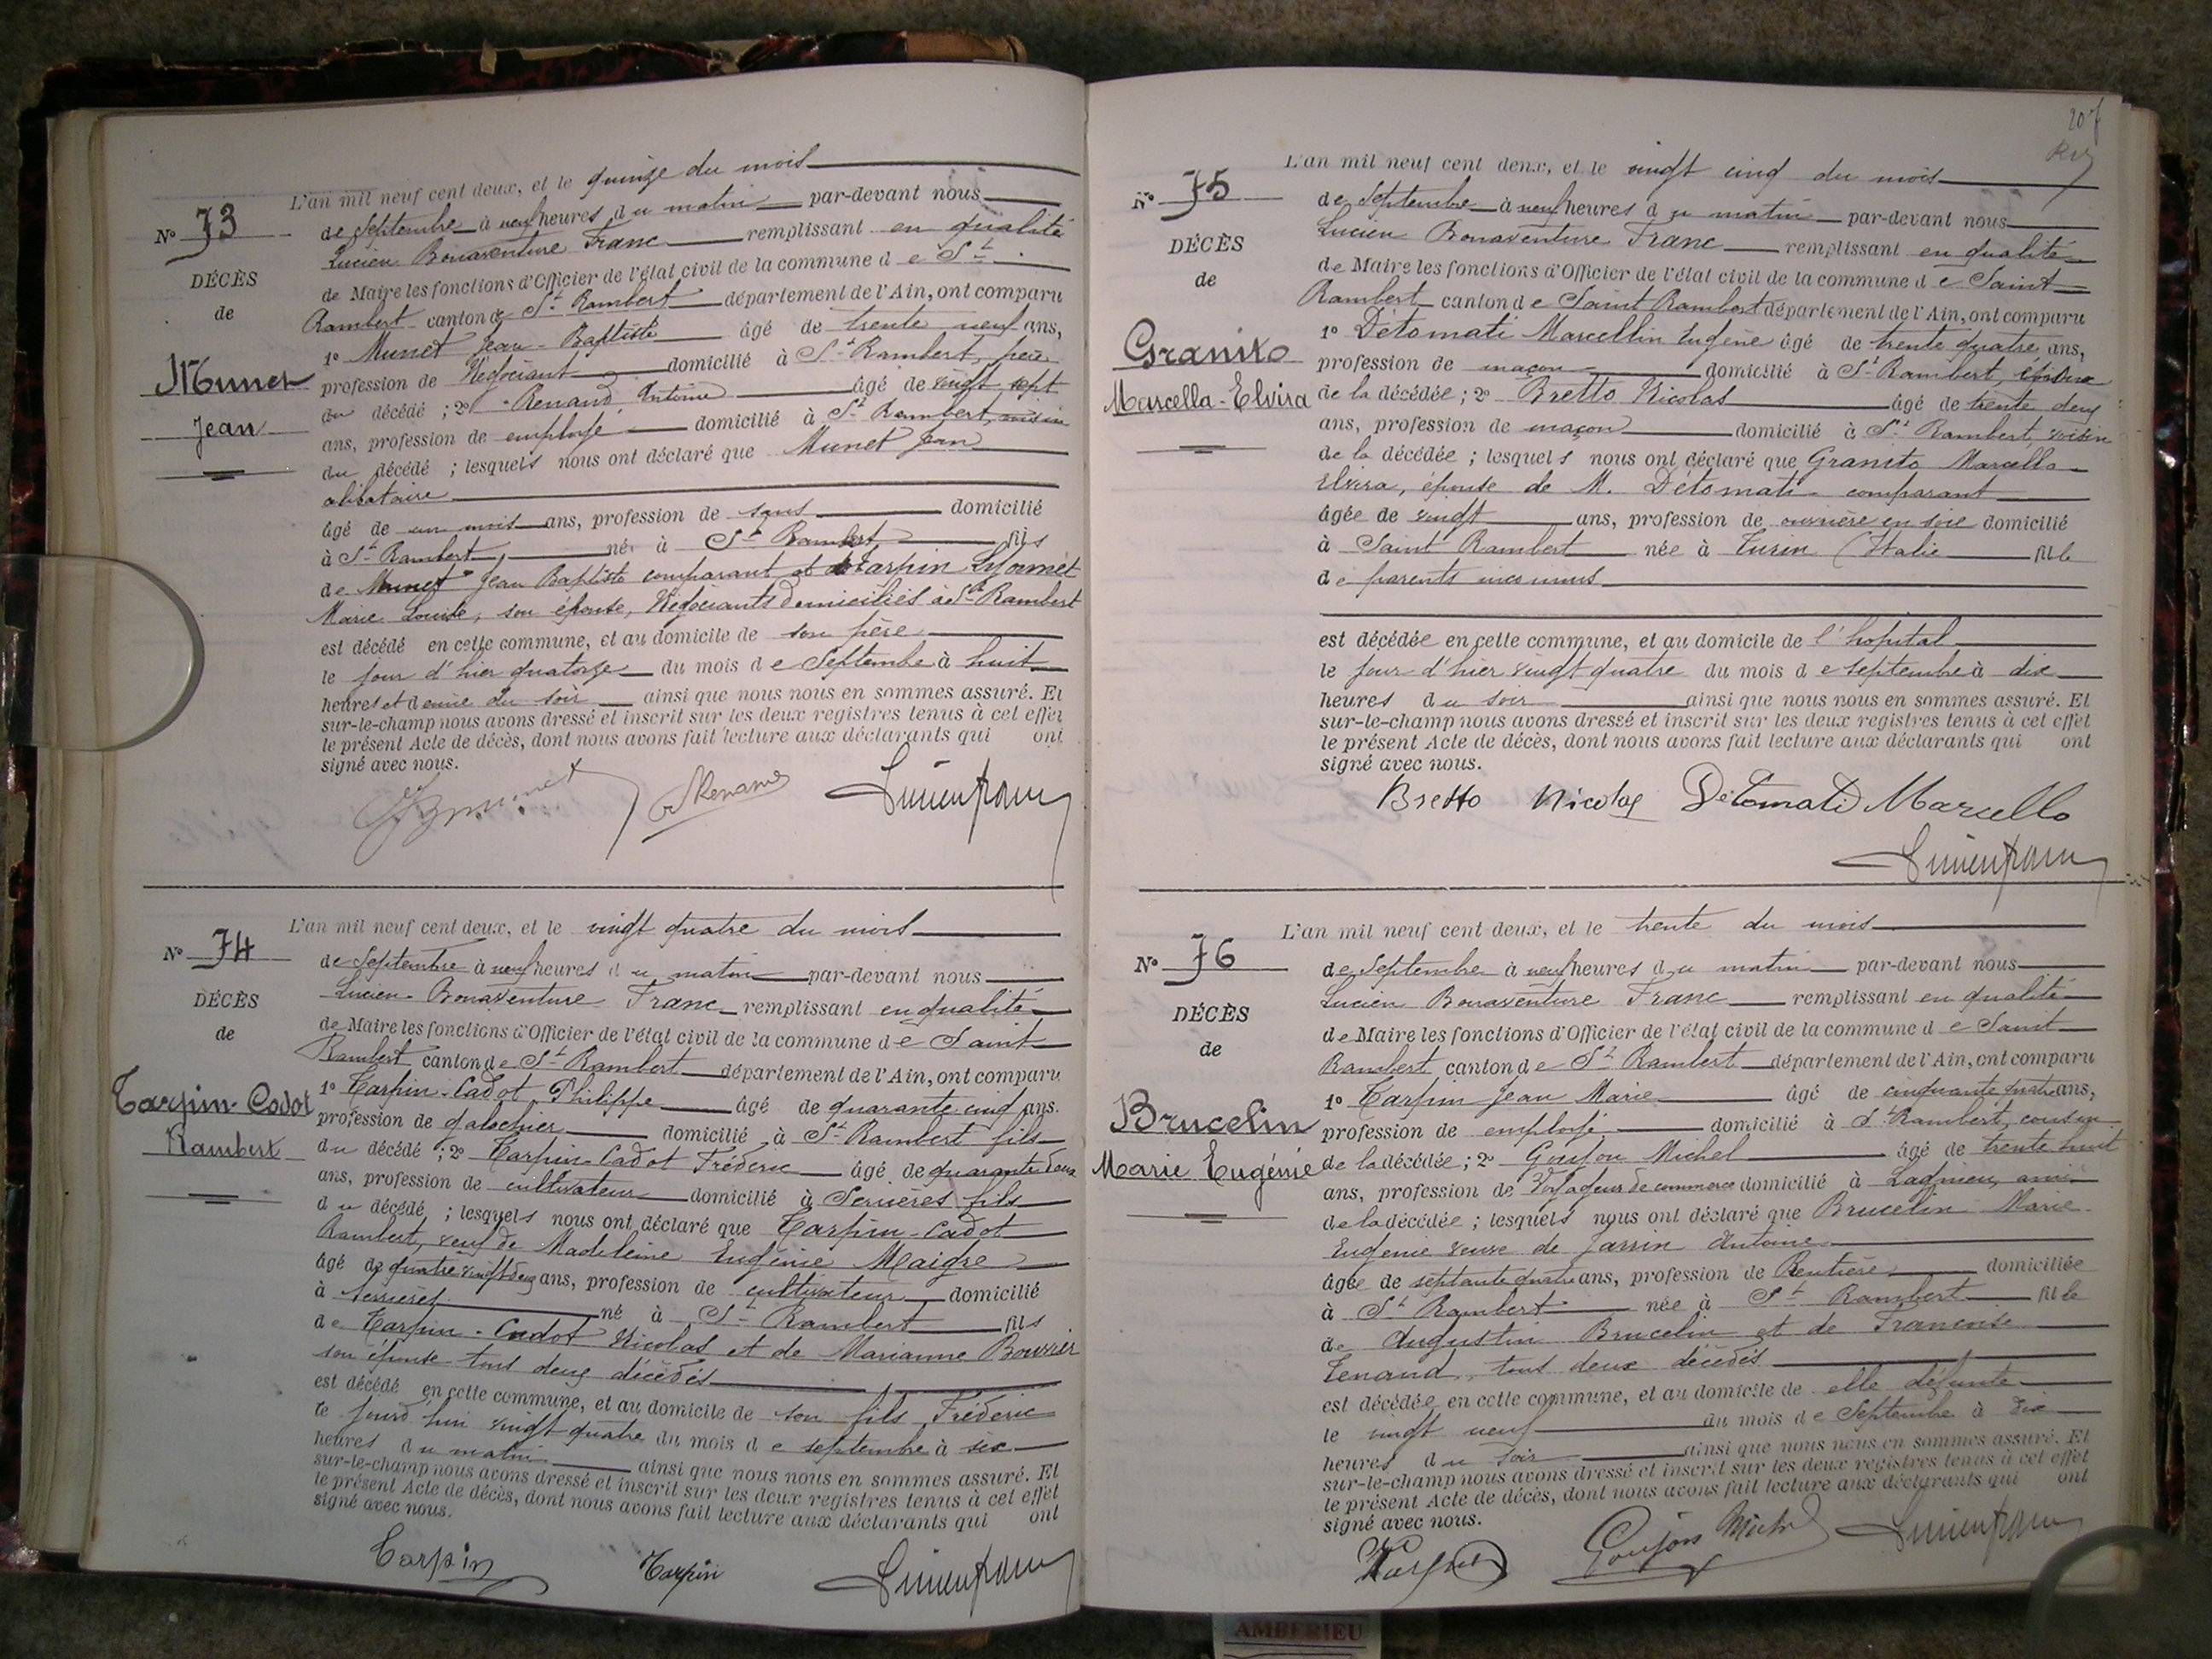 L'an mil neuf cent deux, et le quinze du mois
N° 73
de Septembre à neuf heures du matin par-devant nous
Lucien Bonaventure Franc remplissant en qualité
DÉCÈS
de Maire les fonctions d'Officier de l'état civil de la commune de St
de
Rambert canton de St Rambert département de l'Ain, ont comparu
1° Munet Jean-Baptiste âgé de trente neuf ans,
Munet
profession de Négociant domicilié à St Rambert, père
du décédé ; 2° Renand Antoine âgé de vingt sept
Jean
ans, profession de employé domicilié à St Rambert, voisin
du décédé ; lesquels nous ont déclaré que Munet Jean
célibataire
âgé de un mois ans, profession de sans domicilié
à St Rambert, né à St Rambert fils
de Munet Jean Baptiste comparant et de Tarpin Lyonnet
Marie Louise, son épouse, Négociants domiciliés à St Rambert
est décédé en cette commune, et au domicile de son père
le jour d'hier quatorze du mois de Septembre à huit
heures et demie du soir ainsi que nous nous en sommes assuré. Et
sur-le-champ nous avons dressé et inscrit sur les deux registres tenus à cet effet
le présent Acte de décès, dont nous avons fait lecture aux déclarants qui ont
signé avec nous.
Lucien Franc
L'an mil neuf cent deux, et le vingt quatre du mois
N° 74
de Septembre à neuf heures du matin par-devant nous
Lucien-Bonaventure Franc remplissant en qualité
DÉCÈS
de Maire les fonctions d'Officier de l'état civil de la commune de Saint
de
Rambert canton de St Rambert département de l'Ain, ont comparu
1° Tarpin-Cadot Philippe âgé de quarante cinq ans.
Tarpin-Cadot
profession de galochier domicilié à St Rambert fils
Rambert
du décédé ; 2° Tarpin-Cadot Fréderic âgé de quarante deux
ans, profession de cultivateur domicilié à Serrières fils
du décédé ; lesquels nous ont déclaré que Tarpin-Cadot
Rambert, veuf de Madeleine Eugénie Maigre
âgé de quatre vingt deux ans, profession de cultivateur domicilié
à Serrières né à St Rambert fils
de Tarpin-Cadot Nicolas et de Marianne Bouvier
son épouse tous deux décédés
est décédé en cette commune, et au domicile de son fils Fréderic
le jourd'hui vingt quatre du mois de septembre à six
heures du matin ainsi que nous nous en sommes assuré. Et
sur-le-champ nous avons dressé et inscrit sur les deux registres tenus à cet effet
le présent Acte de décès, dont nous avons fait lecture aux déclarants qui ont
signé avec nous.
Tarpin Tarpin Lucien Franc
207
L'an mil neuf cent deux, et le vingt cinq du mois
N° 75
de Septembre à neuf heures du matin par-devant nous
Lucien Bonaventure Franc remplissant en qualité
DÉCÈS
de Maire les fonctions d'Officier de l'état civil de la commune de Saint
de
Rambert canton de Saint Rambert département de l'Ain, ont comparu
1° Détomati Marcellin Eugène âgé de trente quatre ans,
Granito
profession de maçon domicilié à St Rambert, époux
Marcella-Elvira
de la décédée ; 2° Bretto Nicolas âgé de trente deux
ans, profession de maçon domicilié à St Rambert, voisin
de la décédée ; lesquels nous ont déclaré que Granito Marcella
Elvira, épouse de M. Détomati comparant
âgée de vingt ans, profession de ouvrière en soie domicilié
à Saint Rambert née à Turin (Italie fille
de parents inconnus
est décédée en cette commune, et au domicile de l'hopital
le jour d'hier vingt quatre du mois de septembre à dix
heures du soir ainsi que nous nous en sommes assuré. Et
sur-le-champ nous avons dressé et inscrit sur les deux registres tenus à cet effet
le présent Acte de décès, dont nous avons fait lecture aux déclarants qui ont
signé avec nous.
Bretto Nicolas Detomati Marcello
Lucien Franc
L'an mil neuf cent deux, et le trente du mois
N° 76
de Septembre à neuf heures du matin par-devant nous
Lucien Bonaventure Franc remplissant en qualité
DÉCÈS
de Maire les fonctions d'Officier de l'état civil de la commune de Saint
de
Rambert canton de St Rambert département de l'Ain, ont comparu
1° Tarpin Jean Marie âgé de cinquante quatre ans,
Brucelin
profession de employé domicilié à St Rambert, cousin
Marie Eugénie
de la décédée ; 2° Goujon Michel âgé de trente huit
ans, profession de Voyageur de commerce domicilié à Lagnieu, ami
de la décédée ; lesquels nous ont déclaré que Brucelin Marie
Eugénie veuve de Jarrin Antoine
âgée de septante quatre ans, profession de Rentière domiciliée
à St Rambert née à St Rambert fille
de Augustin Brucelin et de Francoise
Tenand, tous deux décédés
est décédée en cette commune, et au domicile de elle défunte
le vingt neuf du mois de Septembre à dix
heures du soir ainsi que nous nous en sommes assuré. Et
sur-le-champ nous avons dressé et inscrit sur les deux registres tenus à cet effet
le présent Acte de décès, dont nous avons fait lecture aux déclarants qui ont
signé avec nous.
Goujon Michel Lucien Franc
AMBERIEU